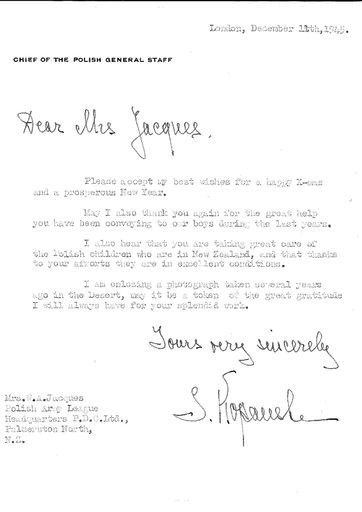 London, December 11th, 1945.
CHIEF OF THE POLISH GENERAL STAFF
Dear Mrs Jacques,
Please accept my best wishes for a happy X-mas
and a prosperous New Year.
May I also thank you again for the great help
you have been conveying to our boys during the last years.
I also hear that you are taking great care of
the Polish children who are in New Zealand, and that thanks
to your afforts they are in excellent conditions.
I am enlosing a photograph taken several years
ago in the Desert, may it be a token of the great gratitude
I will always have for your splendid work.
Yours very sincerely
S. Kopański
Mrs.W.A.Jacques
Polish Army League
Headquarters P.D.C.Ltd.,
Palmerston North,
N.Z.